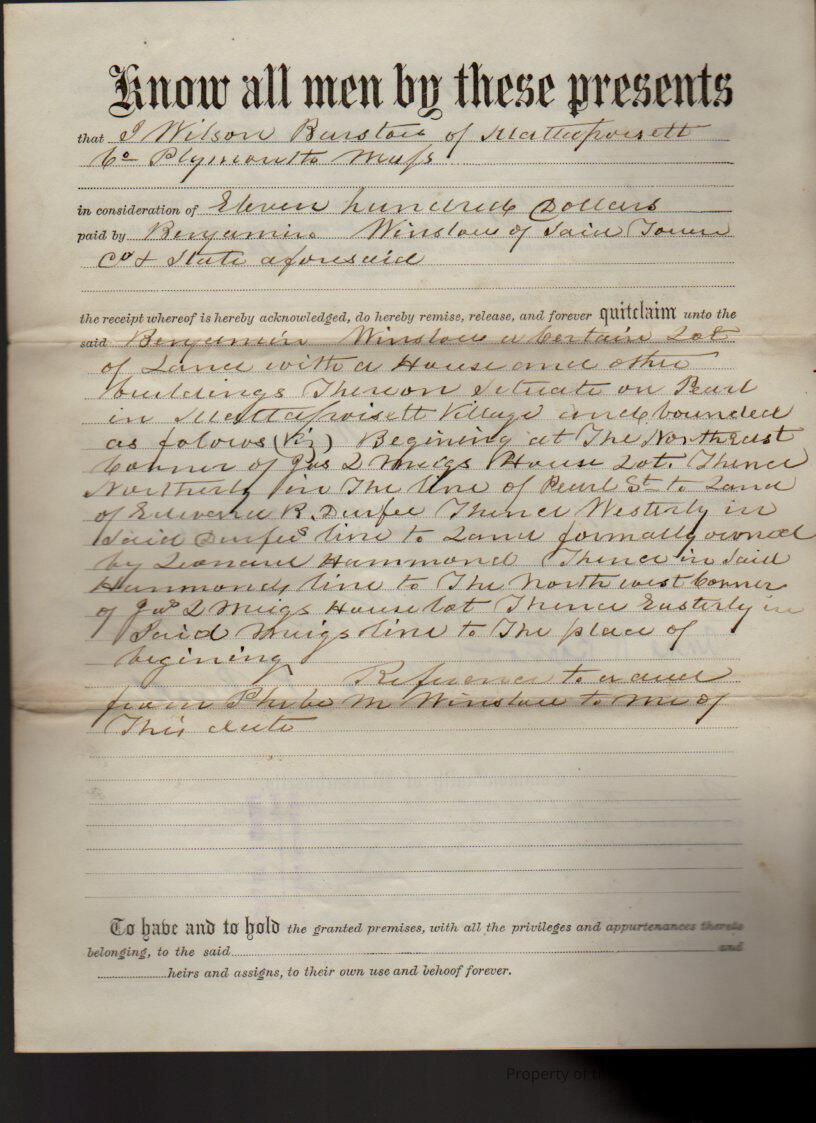 Know all men by these presents
that I Wilson Barstow of Mattapoisett
Co Plymouth Mass
in consideration of Eleven hundred Dollars
paid by Benjamin Winslow of Said Town
Co & State aforesaid
the receipt whereof is hereby acknowledged, do hereby remise, release, and forever quitclaim unto the
said Benjamin Winslow a Certain Lot
of Land with a House and other
buildings Thereon Situate on Pearl
in Mattapoisett Village and bounded
as folows (Viz) Begining at The North East
Corner of Jas L Meigs House Lot. Thence
Northerly in The line of Pearl St to Land
of Edward R. Durfee Thence Westerly in
Said Durfees line to Land formally owned
by Leonard Hammond Thence in Said
Hammonds line to The North west Corner
of Jas L Meigs House lot Thence Easterly in
Said Meigs line to The place of
begining Reference to a deed
from Phebe M Winslow to me of
This date
To have and to hold the granted premises, with all the privileges and appurtenances thereto
belonging, to the said and
heirs and assigns, to their own use and behoof forever.
Property of